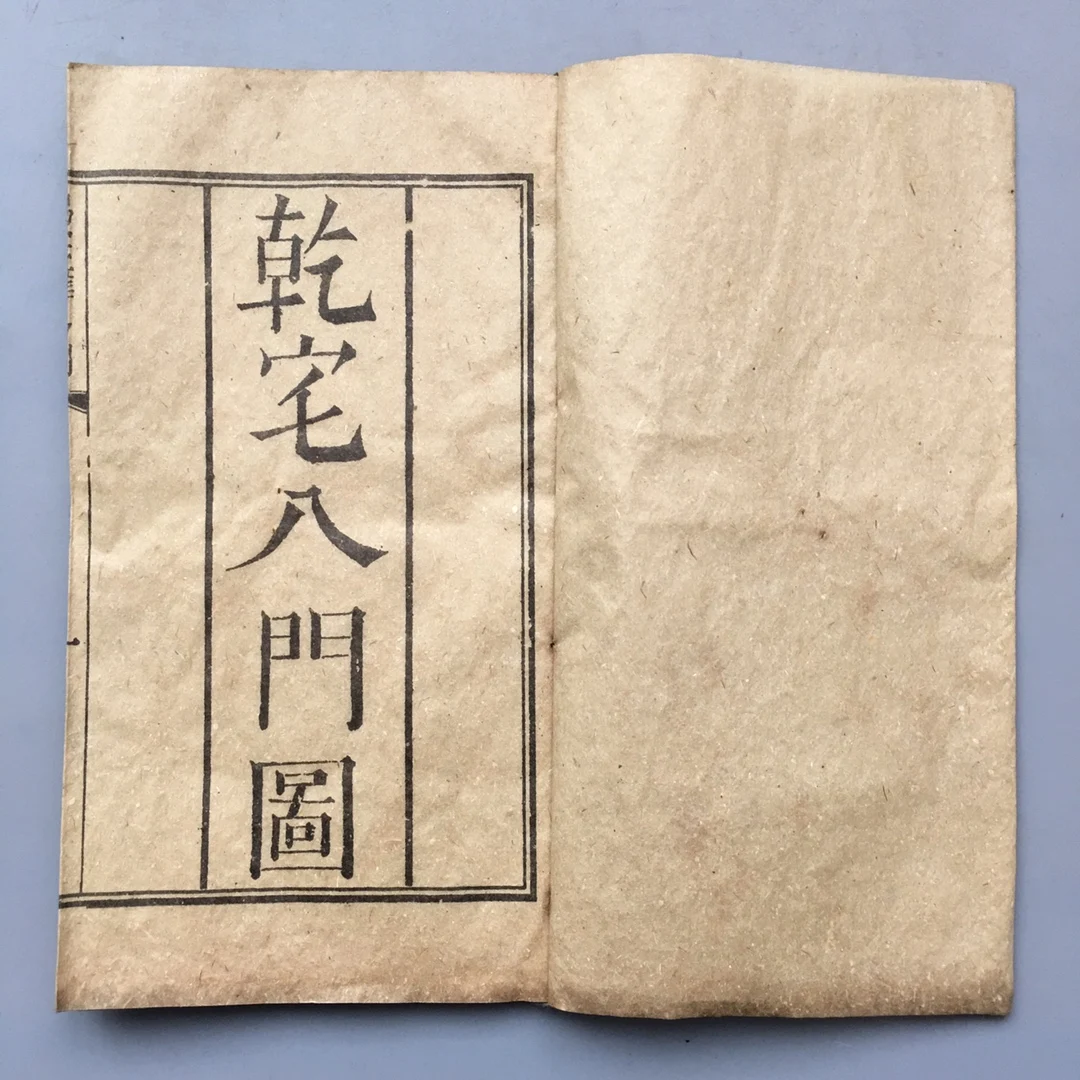 乾宅八門圖
一